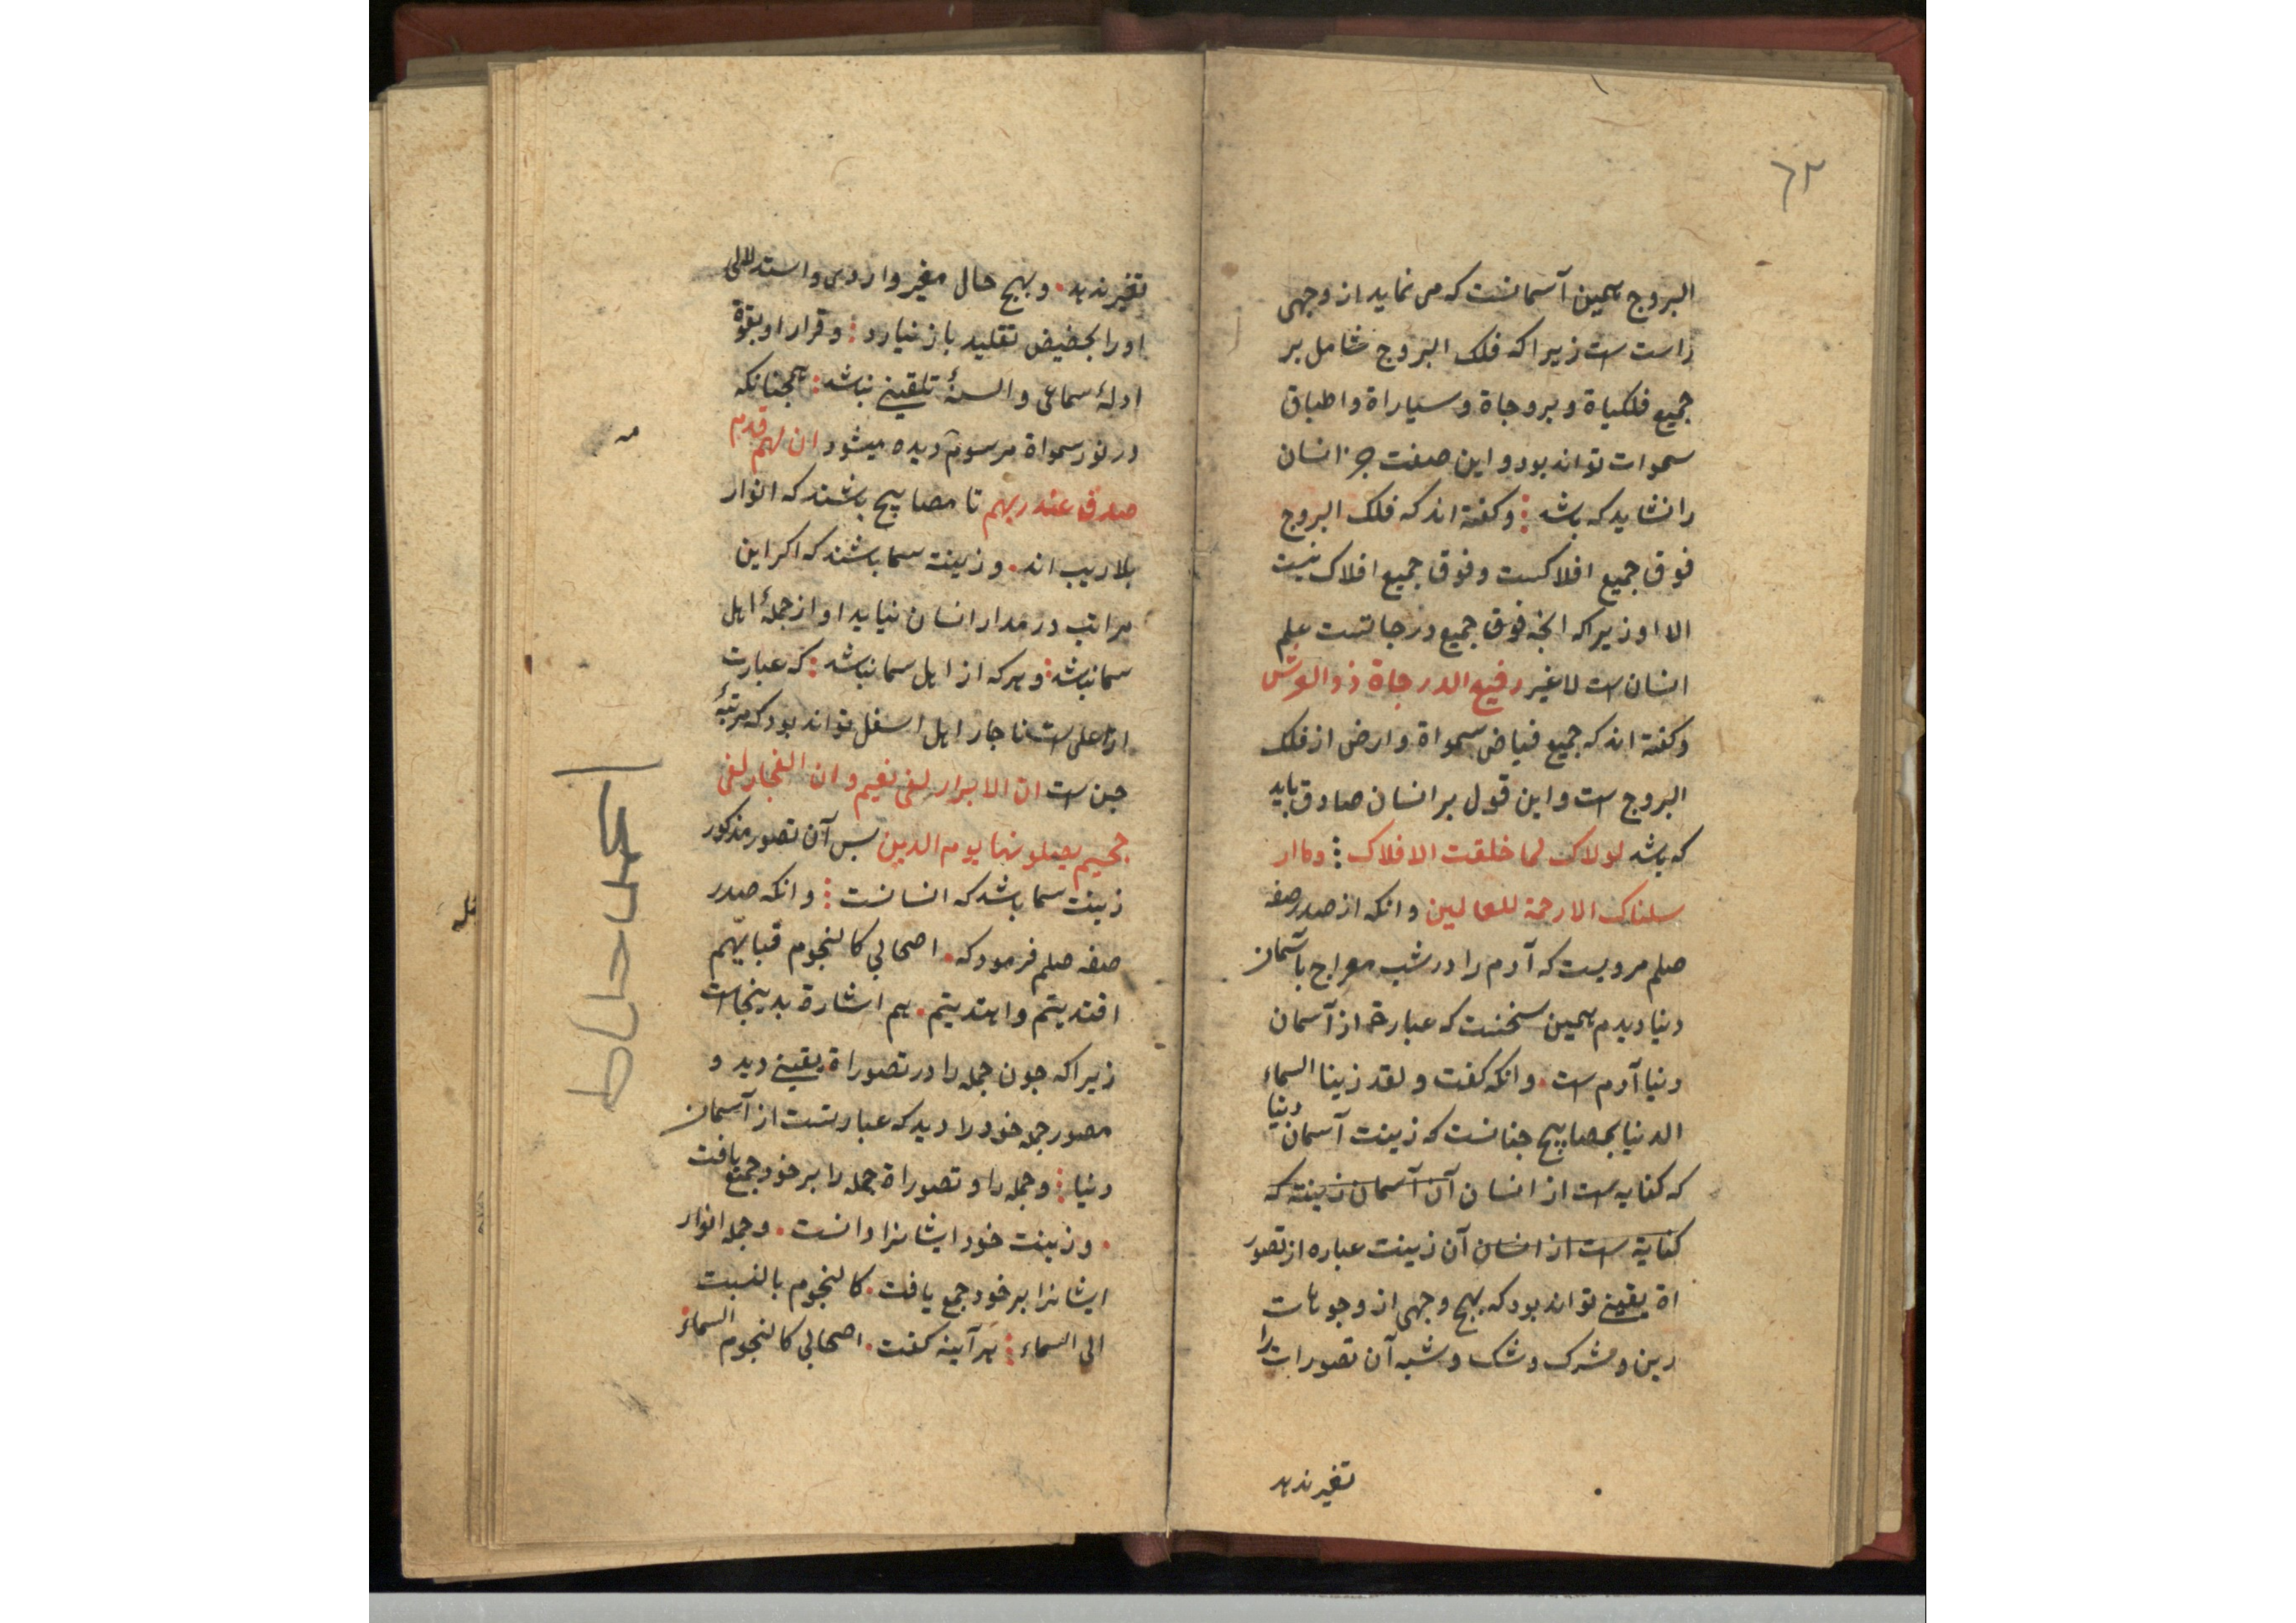 ٦٣
البروج همین آسمانست که می نماید از وجهی
راست است زیرا که فلک البروج شامل بر
جمیع فلکیاة و بروجاة و سیاراة و اطباق
سموات تواند بود و این صفت جز انسان
را نشاید که باشد و کفته اند که فلک البروج
فوق جمیع افلاکست و فوق جمیع افلاک نیست
الا او زیرا که انچه فوق جمیع درجاتست علم
انسان است لاغیر رفیع الدرجاة ذو العرش
و کفته اند که جمیع فیاض سمواة و ارض از فلک
البروج است و این قول بر انسان صادق باید
که باشد لولاک لما خلقت الافلاک و ما ار
سلناک الا رحمة للعالمین و انکه از صدر صفه
صلم مرویست که آدم را در شب معراج بآسمان
دنیا دیدم همین سخنست که عبارة از آسمان
دنیا آدم است . و انکه کفت و لقد زینا السماء
الدنیا بمصابیح جنانست که زینت آسمان دنیا
که کنایه است از انسان آن آسمان زینته که
کنایة است از انسان آن زینت عباره از تصور
اة یقینی تواند بود که بهیچ وجهی از وجوهات
رین و شرک و شک و شبه آن تصورات را
تغیر ندهد
تغیر ندهد . و بهیچ حال مغیر وارد و استدلالی
او را بحضیض تقلید باز نیارد و قرار او بقوة
ادلهٔ سماعی و السنهٔ تلقینی نباشد همجنانکه
در نور سمواة مرسوم دیده میشود ان لهم قدم
صدق عند ربهم تا مصابیح باشند که انوار
بلا ریب اند . و زینته سما باشند که اکر این
مراتب در مدار انسان نیاید او از جملهٔ اهل
سما نباشد و هر که از اهل سما نباشد که عبارت
از اعلی است ناجار اهل اسفل تواند بود که مرتبهٔ
جن است ان الابرار لفی نعیم و ان الفجار لفی
جحیم یصلونها یوم الدین بس آن تصور مذکور
زینت سما باشد که انسانست و انکه صدر
صفه صلم فرمود که . اصحابی کالنجوم فبایهم
اقتدیتم و اهتدیتم . هم اشارة بدینجاست
زیرا که جون جمله را در تصوراة یقینی دید و
مصور جمله خود را دید که عبارتست از آسمان
دنیا و جمله را و تصوراة جمله را بر خود جمع یافت
. و زینت خود ایشانرا دانست . و جمله انوار
ایشانرا بر خود جمع یافت . کالنجوم بالنسبت
الی السماء هر آینه کفت . اصحابی کالنجوم السماء